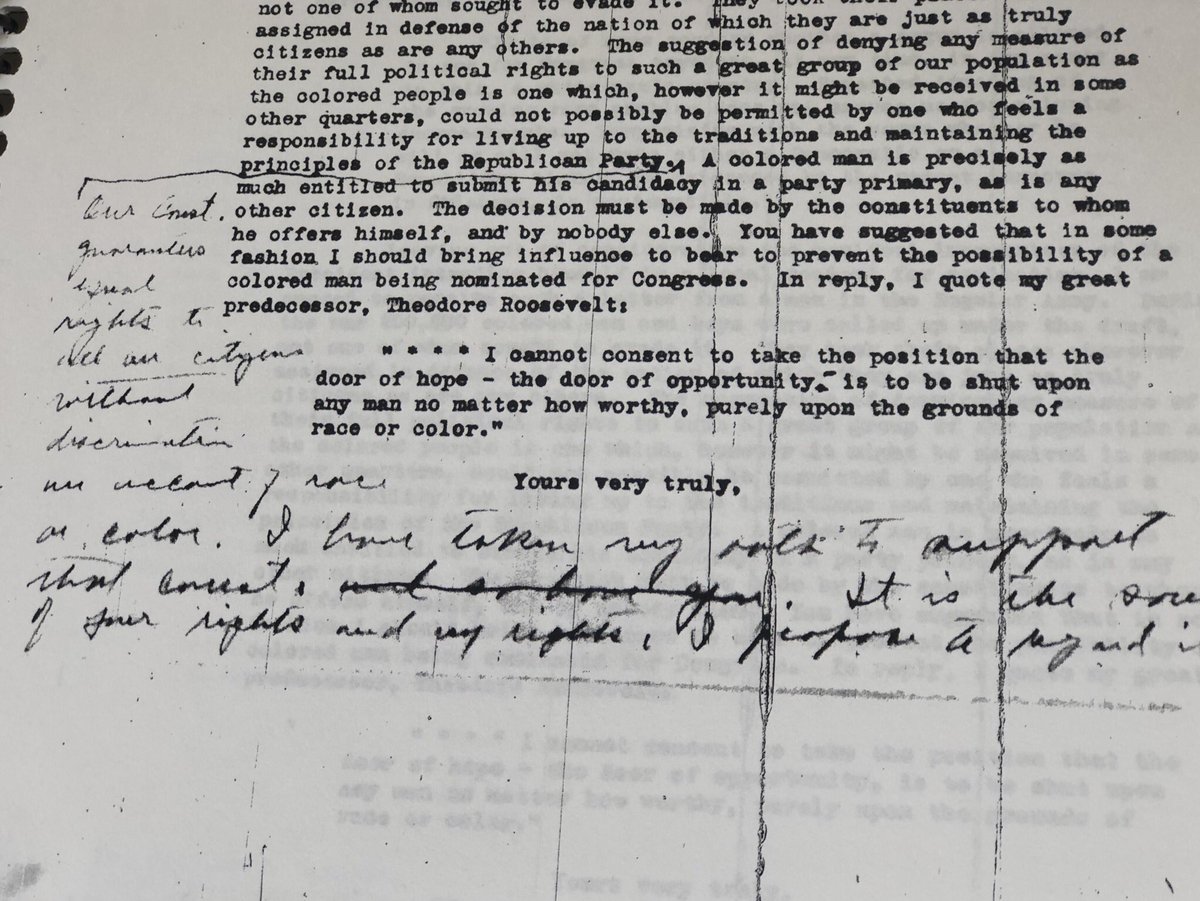 not one of whom sought to evade it. They took their
assigned in defense of the nation of which they are just as truly
citizens as are any others. The suggestion of denying any measure of
their full political rights to such a great group of our population as
the colored people is one which, however it might be received in some
other quarters, could not possibly be permitted by one who feels a
responsibility for living up to the traditions and maintaining the
principles of the Republican Party. A colored man is precisely as
much entitled to submit his candidacy in a party primary, as is any
other citizen. The decision must be made by the constituents to whom
he offers himself, and by nobody else. You have suggested that in some
fashion I should bring influence to bear to prevent the possibility of a
colored man being nominated for Congress. In reply, I quote my great
predecessor, Theodore Roosevelt:
"* * * * I cannot consent to take the position that the
door of hope - the door of opportunity - is to be shut upon
any man no matter how worthy, purely upon the grounds of
race or color."
Yours very truly,
Our Const.
guarantees
equal
rights to
all our citizens
without
discrimination
on account of race
or color. I have taken my oath to support
that Const. and so have you. It is the sou
of your rights and my rights, I propose to regard i